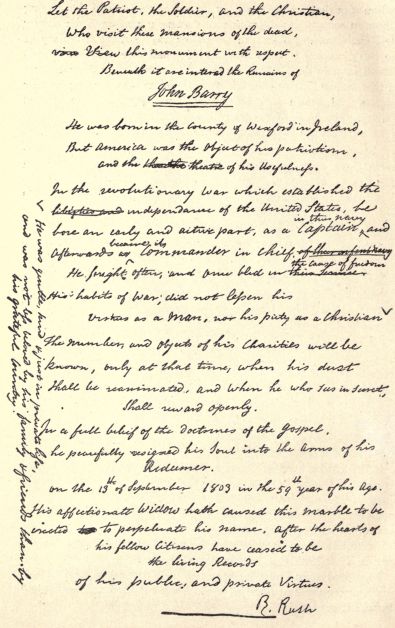 Let the Patriot, the Soldier, and the Christian,
Who visit these mansions of the dead,
View this monument with respect.
Beneath it are interred the Remains of
John Barry
He was born in the County of Wexford in Ireland,
But America was the object of his patriotism,
and the theatre of his Usefulness.
In the revolutionary War which established the
independance of the United States, he
bore an early and active part, as a Captain in their navy, and
afterwards became its Commander in Chief,
He fought often, and once bled in the cause of freedom
His habits of War, did not lessen his
virtues as a Man, nor his piety as a Christian
He was gentle, kind and just in private life,
and was not less beloved by his family & friends than by
his grateful Country.
The number, and objects of his Charities will be
known, only at that time, when his dust
Shall be reanimated, and when he who sees in Secret,
Shall reward openly.
In a full belief of the doctrines of the Gospel,
he peacefully resigned his Soul into the arms of his
Redeemer.
on the 13th of September 1803 in the 59th year of his Age.
His affectionate Widow hath caused this marble to be
erected to perpetuate his name, after the hearts of
his fellow Citizens have ceased to be
the living Records
of his public, and private Virtues.
B. Rush